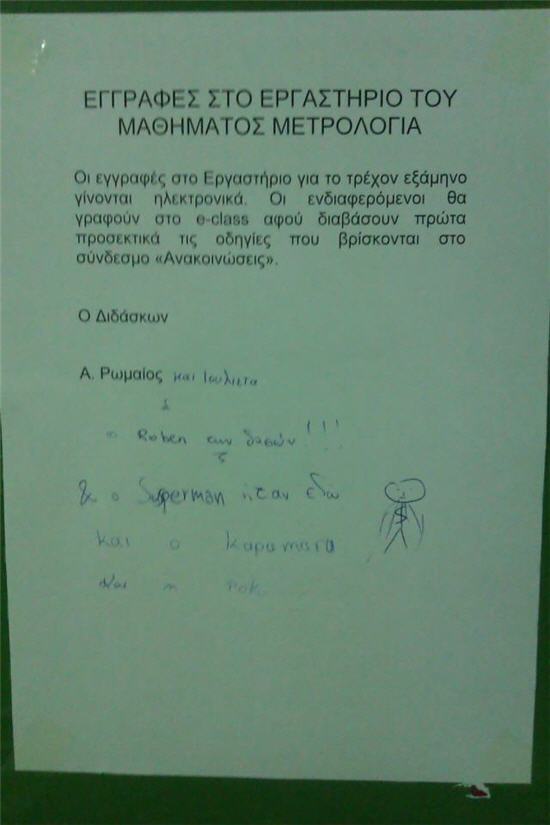 ΕΓΓΡΑΦΕΣ ΣΤΟ ΕΡΓΑΣΤΗΡΙΟ ΤΟΥ
ΜΑΘΗΜΑΤΟΣ ΜΕΤΡΟΛΟΓΙΑ
Οι εγγραφές στο Εργαστήριο για το τρέχον εξάμηνο
γίνονται ηλεκτρονικά. Οι ενδιαφερόμενοι θα
γραφούν στο e-class αφού διαβάσουν πρώτα
προσεκτικά τις οδηγίες που βρίσκονται στο
σύνδεσμο «Ανακοινώσεις».
Ο Διδάσκων
Α. Ρωμαίος και Ιουλιετα
ο Roben των δασών!!!
& ο Superman ήταν εδώ
και ο
και η